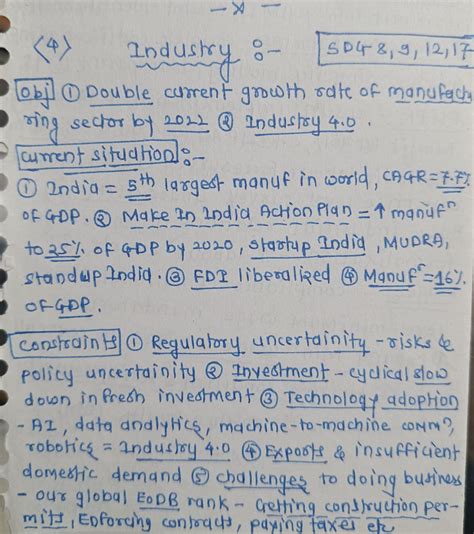 -x-
<4> Industry :- SDG 8, 9, 12, 17
Obj ① Double current growth rate of manufactu
ring sector by 2022 ② Industry 4.0.
Current situation :-
① India = 5th largest manuf in world, CAGR = 7.7%
of GDP. ② Make In India Action Plan = ↑ manufⁿ
to 25% of GDP by 2020, startup India, MUDRA,
standup India. ③ FDI liberalized ④ Manufʳ = 16%
of GDP.
Constraints ① Regulatory uncertainity - risks &
policy uncertainity ② Investment - cyclical slow
down in fresh investment ③ Technology adoption
- AI, data analytics, machine-to-machine commⁿ,
robotics = Industry 4.0 ④ Exports & insufficient
domestic demand ⑤ challenges to doing business
- our global EoDB rank - Getting construction per-
mits, Enforcing contracts, paying taxes etc